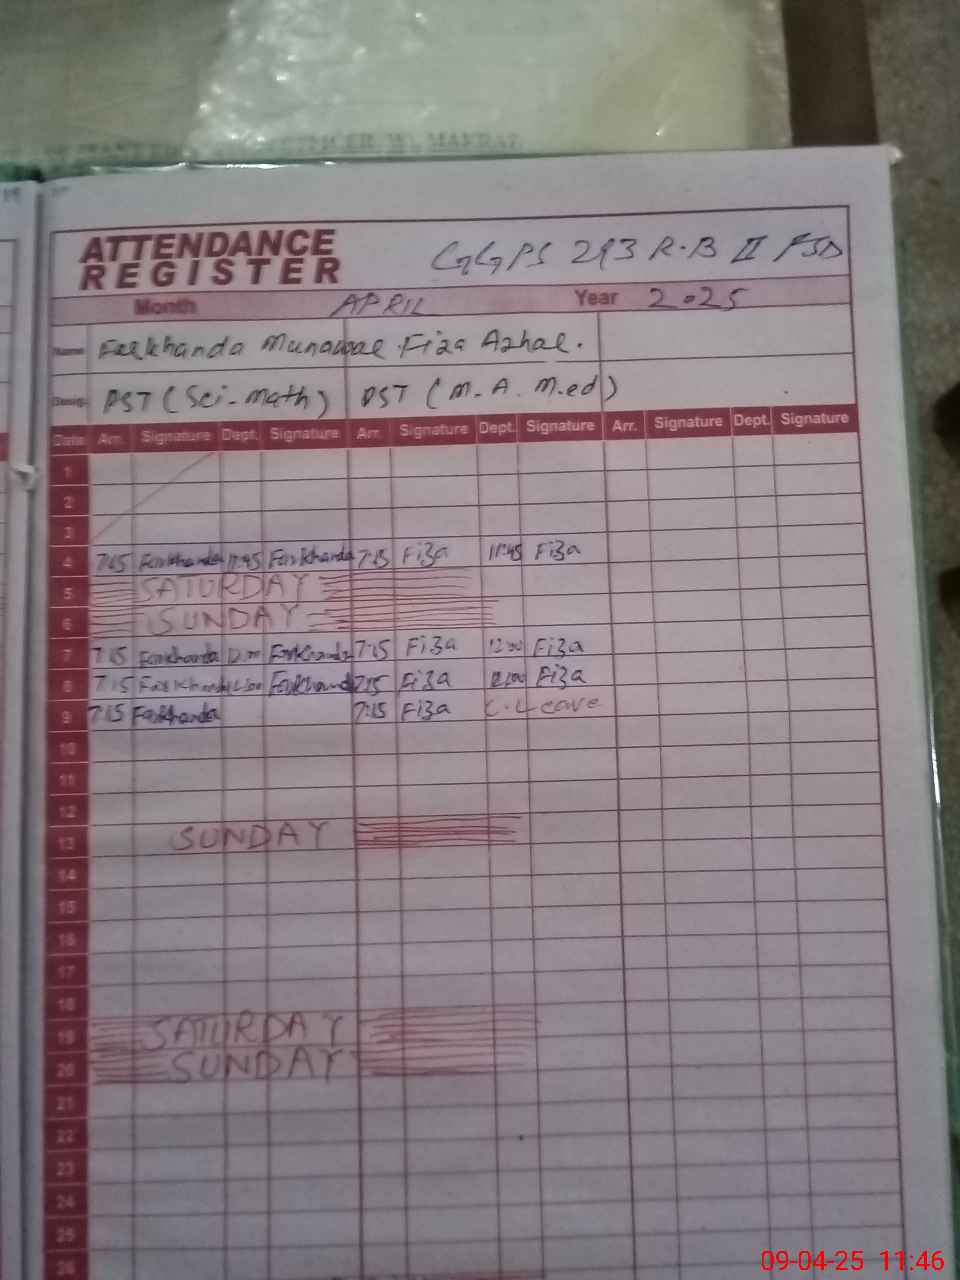 ATTENDANCE REGISTER GGPS 293 R.B II FSD
Month APRIL Year 2025
Name Farkhanda Munawar Fiza Azhar.
Desig. PST (Sci-Math) PST (M.A. M.ed)
Date Arr. Signature Dept. Signature Arr. Signature Dept. Signature Arr. Signature Dept. Signature
1
2
3
4 7:15 Farkhanda 11:45 Farkhanda 7:15 Fiza 11:45 Fiza
5 SATURDAY
6 SUNDAY
7 7:15 Farkhanda 12:00 Farkhanda 7:15 Fiza 12:00 Fiza
8 7:15 Farkhanda 12:00 Farkhanda 7:15 Fiza 12:00 Fiza
9 7:15 Farkhanda 7:15 Fiza C. Leave
10
11
12
13 SUNDAY
14
15
16
17
18
19 SATURDAY
20 SUNDAY
21
22
23
24
25
26
09-04-25 11:46